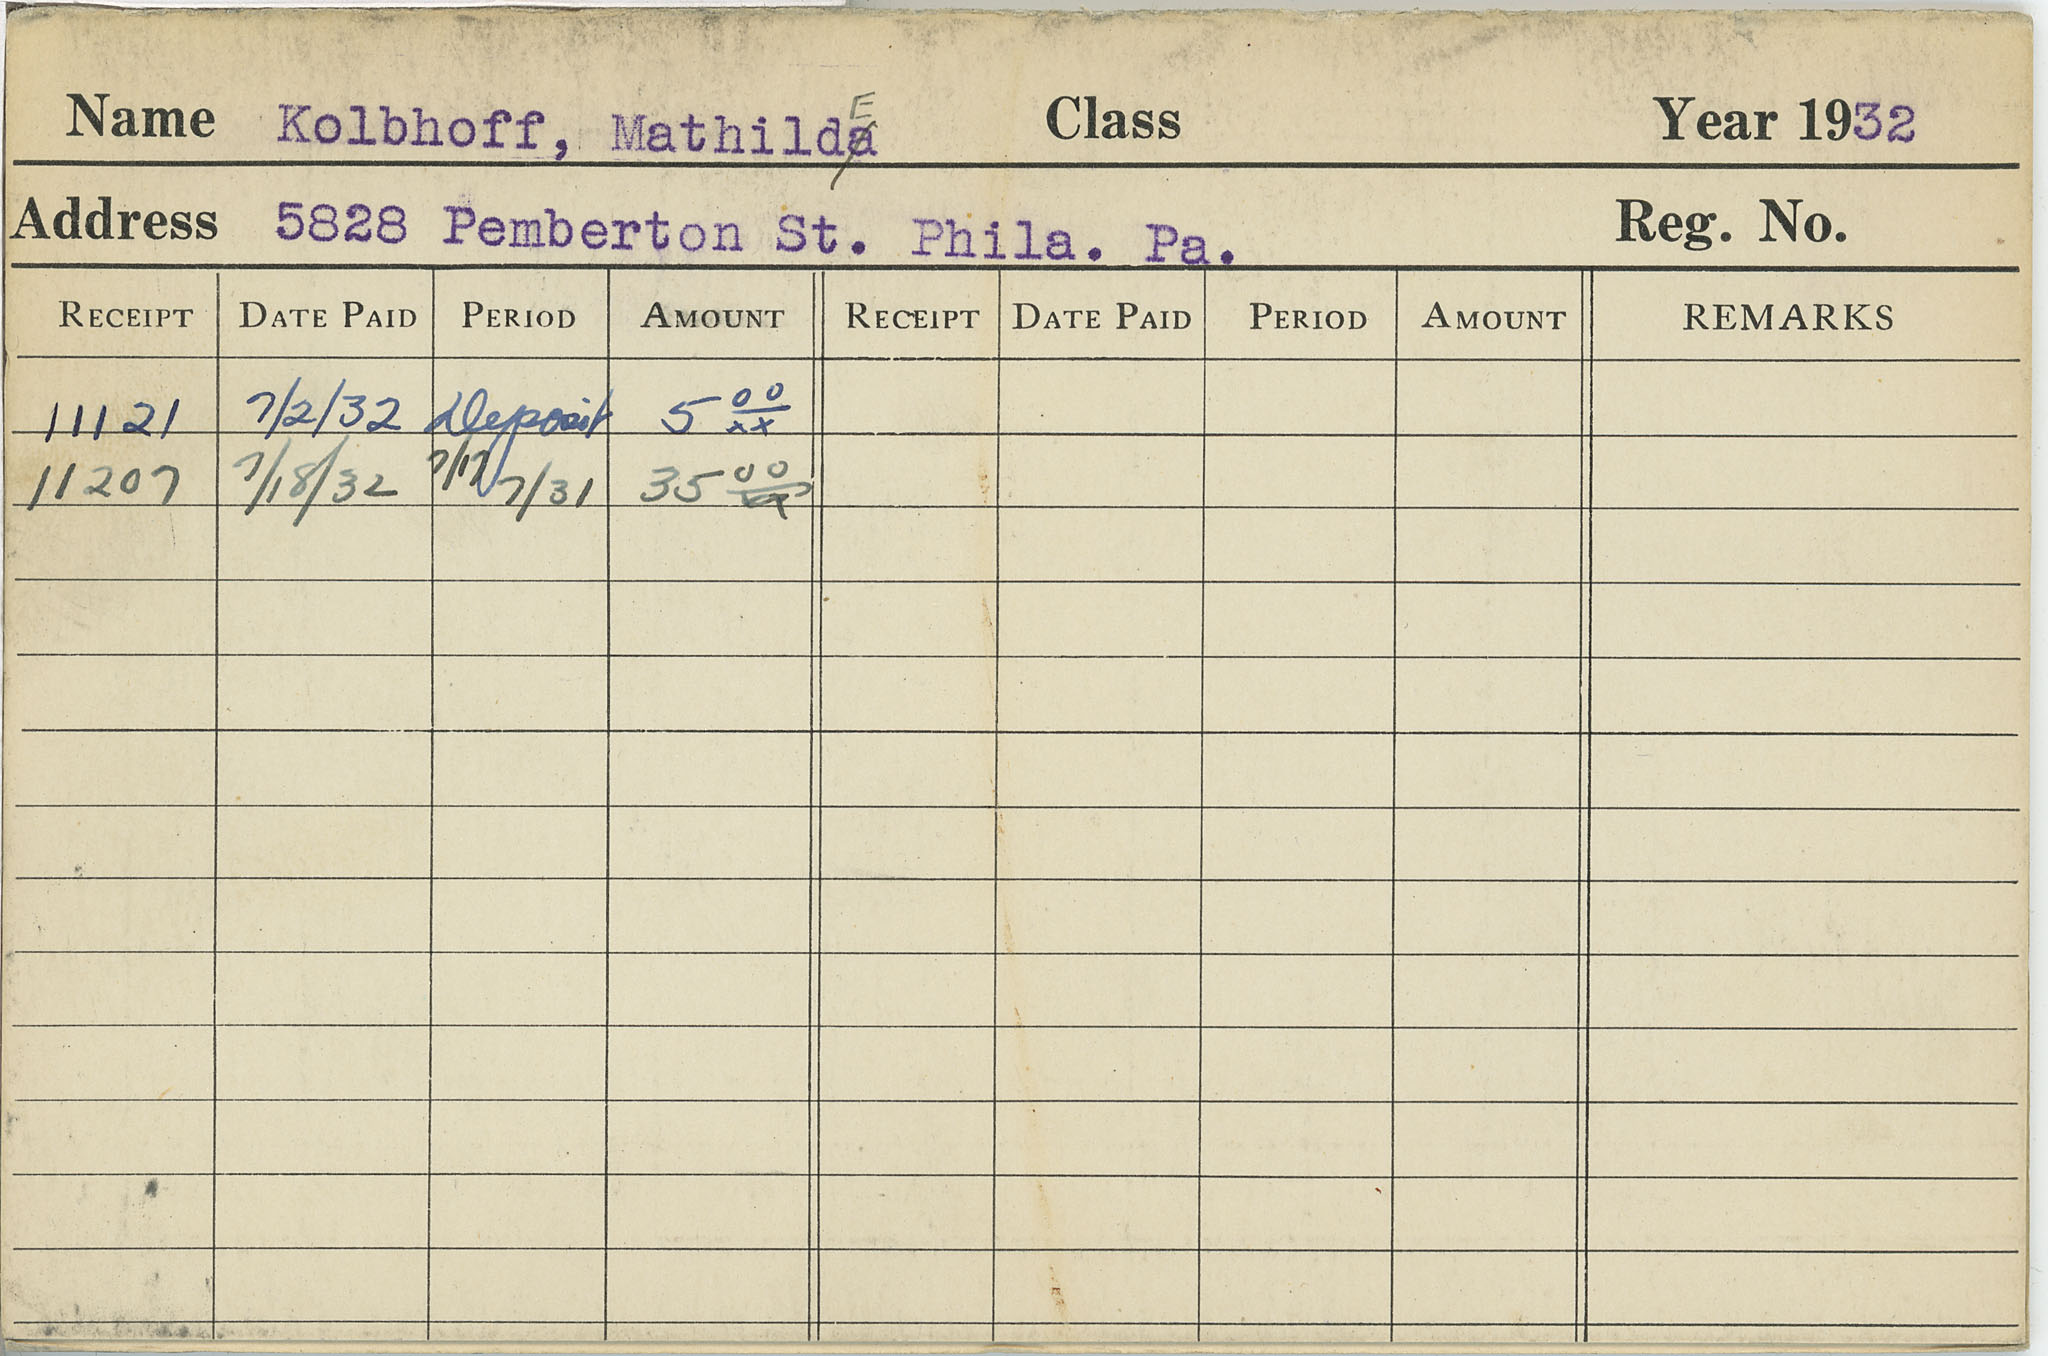 Name Kolbhoff, MathildE Class Year 1932
Address 5828 Pemberton St. Phila. Pa. Reg. No.
RECEIPT DATE PAID PERIOD AMOUNT RECEIPT DATE PAID PERIOD AMOUNT REMARKS
11121 7/2/32 Deposit 5 00/xx
11207 7/18/32 7/17 7/31 35 00/xx